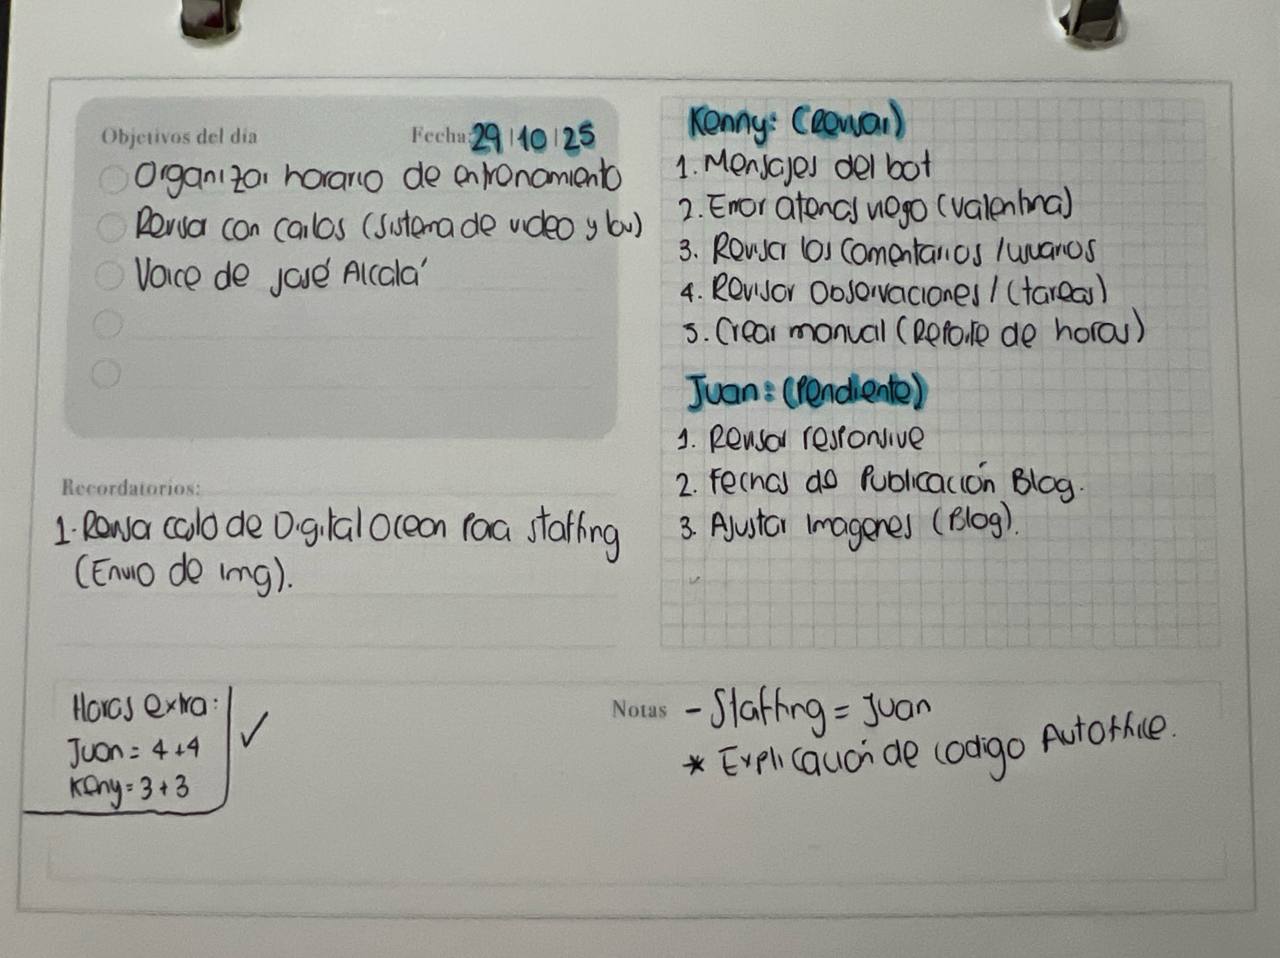 Objetivos del día
Fecha: 29|10|25
Organizar horario de entrenamiento
Revisar con Carlos (sistema de video y bu)
Voice de José Alcalá
Recordatorios:
1. Revisar de Digital Ocean para staffing
(Envio de img).
Horas extra:
Juan = 4+4
Keny = 3+3
Kenny: (Revisar)
1. Mensajes del bot
2. Error atencs (Valentina)
3. Revisar los comentarios /usuarios
4. Revisar Observaciones / (tareas)
5. Crear manual (Reporte de horas)
Juan: (Pendiente)
1. Revisar responsive
2. Fechas de Publicación Blog.
3. Ajustar Imagenes (Blog).
Notas
- Staffing = Juan
* Explicación de codigo Autoffice.